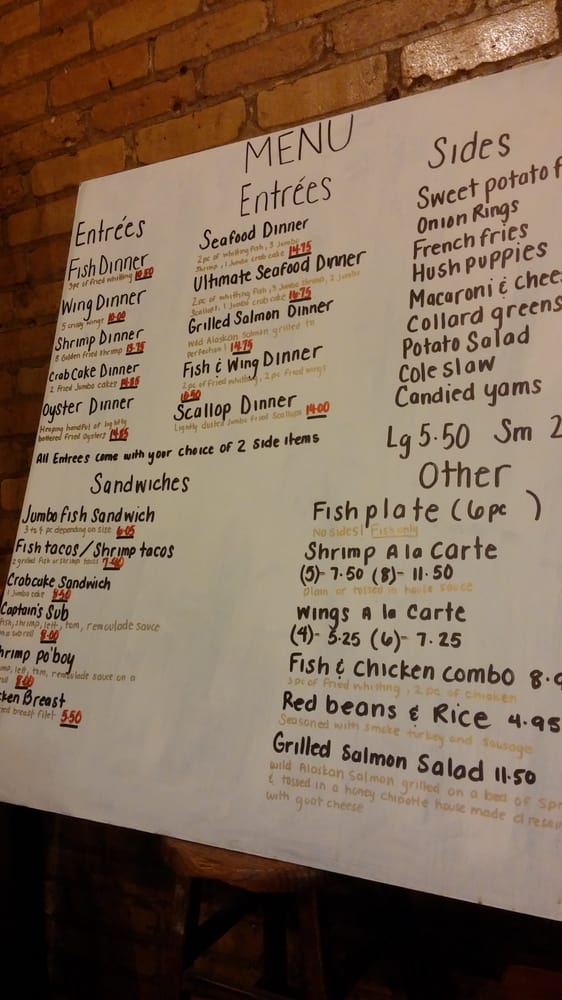 MENU
Entrées
Fish Dinner
3pc of fried whitting 10.50
Wing Dinner
5 crispy wings 10.00
Shrimp Dinner
8 Golden fried shrimp 13.75
Crab Cake Dinner
2 fried Jumbo cakes
Oyster Dinner
Heaping handful of lightly
battered fried oysters
Entrées
Seafood Dinner
2pc of whitting fish, 3 Jumbo
shrimp, 1 Jumbo crab cake 14.75
Ultimate Seafood Dinner
2pc of whitting fish, 3 Jumbo shrimp, 2 jumbo
scallops, 1 jumbo crab cake 16.75
Grilled Salmon Dinner
Wild Alaskan salmon grilled to
perfection! 14.75
Fish & Wing Dinner
2 pc of fried whitting, 2 pc fried wings
10.50
Scallop Dinner
Lightly dusted Jumbo fried scallops 14.00
All Entrees come with your choice of 2 side items
Sandwiches
Jumbo fish Sandwich
3 to 4 pc depending on size
Fish tacos/Shrimp tacos
2 grilled fish or shrimp tacos
Crabcake Sandwich
1 Jumbo cake 8.50
Captain's Sub
fish, shrimp, lett, tom, remoulade sauce
on a sub roll 8.00
hrimp po'boy
mp, lett, tom, remoulade sauce on a
roll 8.00
ken Breast
ied breast filet 5.50
Sides
Sweet potato f
Onion Rings
French fries
Hush puppies
Macaroni & chee
Collard greens
Potato Salad
Cole slaw
Candied yams
Lg 5.50 Sm 2
Other
Fish plate (6pc )
No sides! Fish only
Shrimp A la Carte
(5)- 7.50 (8)- 11.50
plain or tossed in house sauce
Wings A la Carte
(4)- 5.25 (6)- 7.25
Fish & Chicken combo 8.9
3pc of fried whitting, 2 pc of chicken
Red beans & Rice 4.95
Seasoned with smoke turkey and sausage
Grilled Salmon Salad 11.50
wild Alaskan Salmon grilled on a bed of Spr
& tossed in a honey chipotle house made dressin
with goat cheese